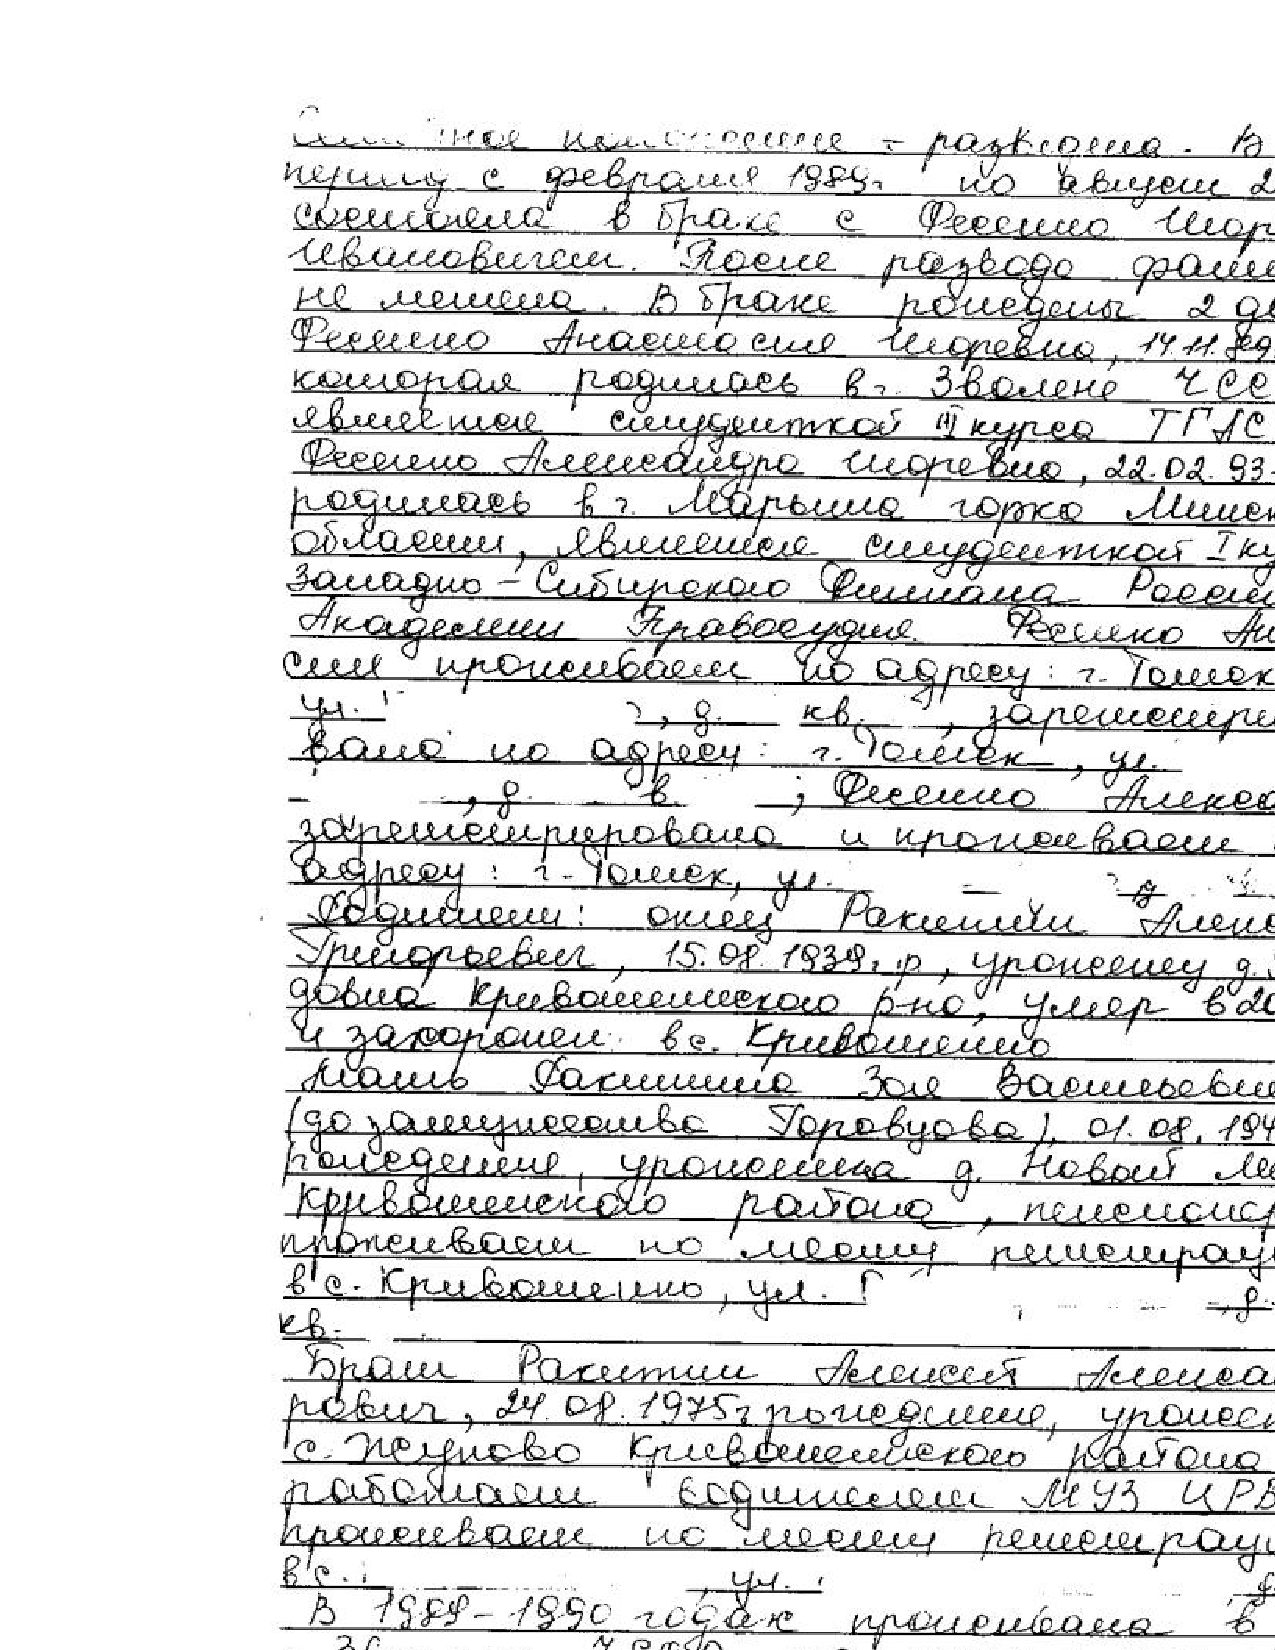 Семейное положение - разведена. В
период с февраля 1989г. по август 2
состояла в браке с Фесенко Игор
Ивановичем. После развода фами
не меняла. В браке рождены 2 де
Фесенко Анастасия Игоревна, 14.11.89
которая родилась в г. Зволене ЧСС
является студенткой III курса ТГАС
Фесенко Александра Игоревна, 22.02.93
родилась в г. Марьина горка Минск
области, является студенткой I ку
Западно-Сибирского Филиала Росси
Академии Правосудия. Фесенко Ан
сия проживает по адресу: г. Томск
ул. , д. кв. , зарегистри
вана по адресу: г. Томск, ул.
, д. в. ; Фесенко Алекса
зарегистрирована и проживает
адресу: г. Томск, ул.
Родители: отец Ракитин Алекс
Григорьевич, 15.08.1939г.р, уроженец д.
довка Кривошеинского р-на, умер в 20
и захоронен в с. Кривошеино
Мать Ракитина Зоя Васильевн
(до замужества Торовцова), 01.08.194
рождения, уроженка д. Новой
Кривошеинского района, пенсионер
проживает по месту регистрац
в с. Кривошеино, ул. Г , д.
кв.
Брат Ракитин Алексей Алекса
рович, 24.08.1975г рождения, урожен
с. Жуково Кривошеинского района
работает водителем МУЗ ЦРБ
проживает по месту регистрац
в с. , ул. д
В 1989-1990 годах проживала в